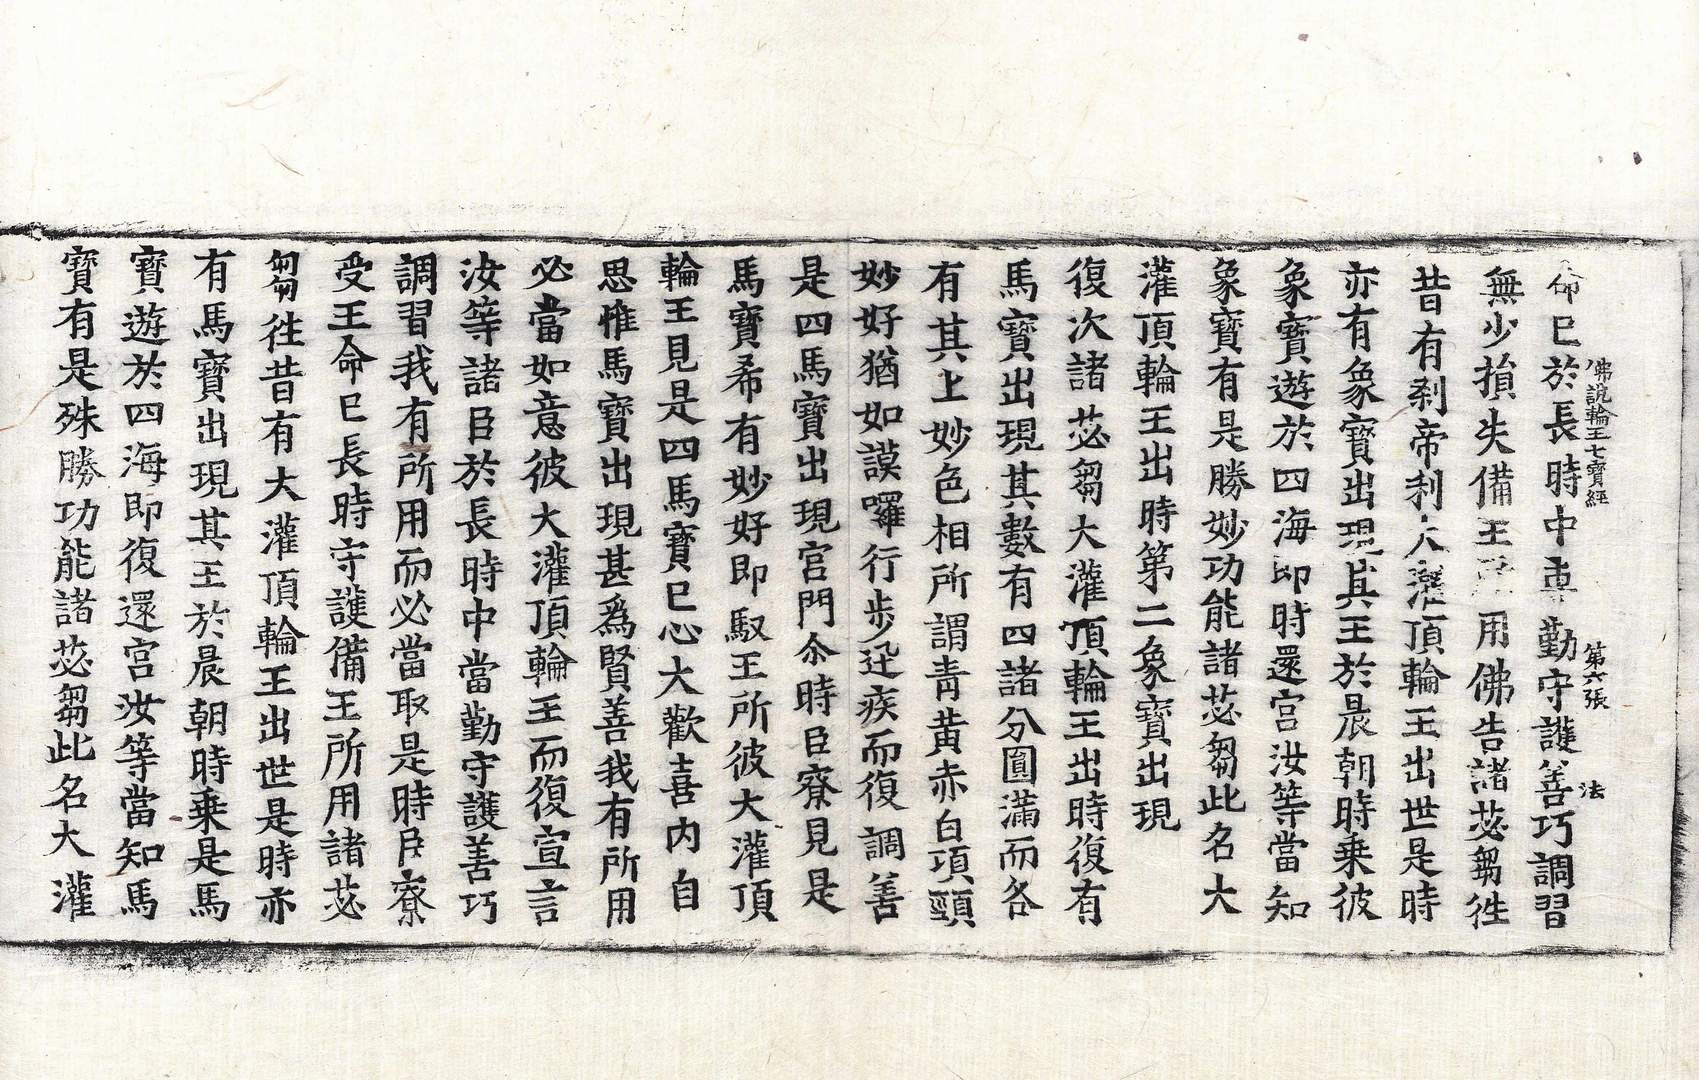 佛說輪王七寶經 第六張 法
命已於長時中專勤守護善巧調習
無少損失備王所用佛告諸苾芻徃
昔有刹帝利大灌頂輪王出世是時
亦有象寶出現其王於晨朝時乗彼
象寶遊於四海即時還宫汝等當知
象寶有是勝妙功能諸苾芻此名大
灌頂輪王出時第二象寶出現
復次諸苾芻大灌頂輪王出時復有
馬寶出現其數有四諸分圓滿而各
有其上妙色相所謂青黄赤白項頸
妙好猶如謨囉行步迅疾而復調善
是四馬寶出現宫門尒時臣寮見是
馬寶希有妙好即馭王所彼大灌頂
輪王見是四馬寶已心大歡喜内自
思惟馬寶出現甚爲賢善我有所用
必當如意彼大灌頂輪王而復宣言
汝等諸臣於長時中當勤守護善巧
調習我有所用而必當取是時臣寮
受王命已長時守護備王所用諸苾
芻徃昔有大灌頂輪王出世是時亦
有馬寶出現其王於晨朝時乗是馬
寶遊於四海即復還宫汝等當知馬
寶有是殊勝功能諸苾芻此名大灌